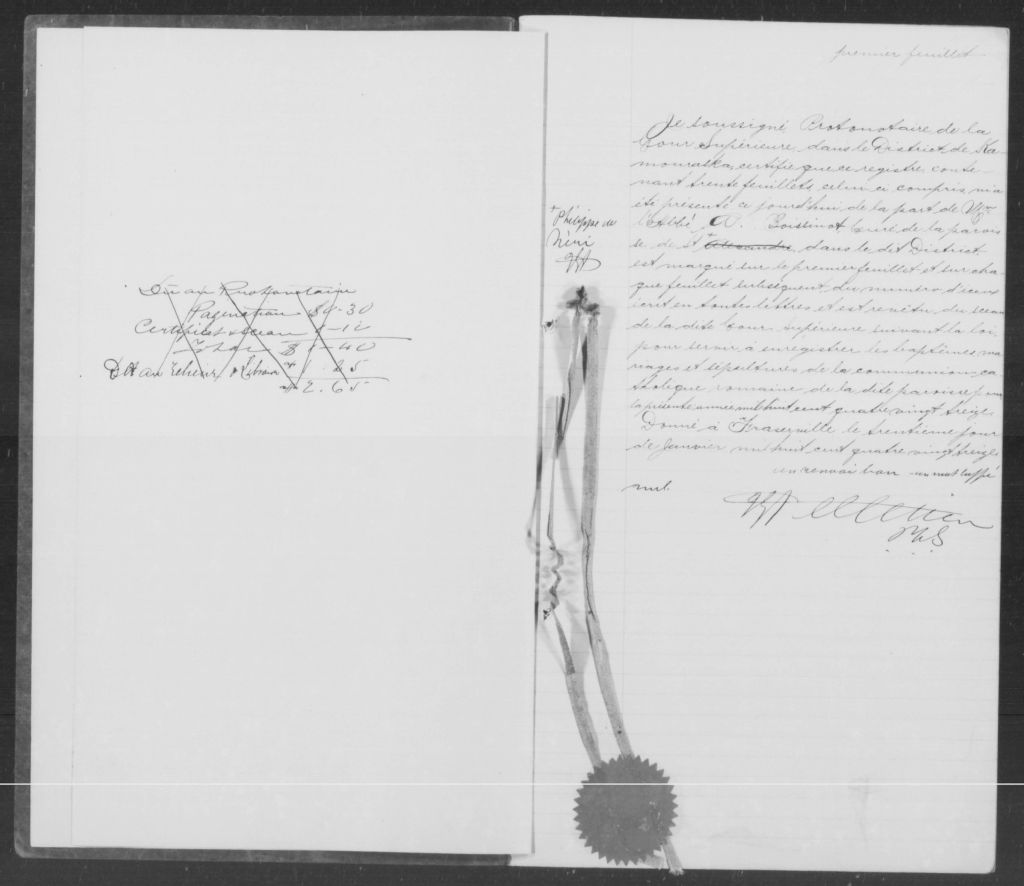 Dû au Protonotaire
Pagination $0-30
Certificat & sceau 1-10
Total $ 1-40
Dû au Relieur
2.65
premier feuillet
Je soussigné Protonotaire de la
Cour Supérieure, dans le District de Ka-
mouraska, certifie que ce registre, conte-
nant trente feuillets, celui ci compris, m'a
été présenté ce jourd'hui, de la part de Mr
l'Abbé, A. Boissinot Curé de la parois
se de St + Alexandre, dans le dit District
est marqué sur le premier feuillet et sur cha
que feuillet subséquent, du numéro d'iceux
écrit en toutes lettres et est revêtu du sceau
de la dite Cour, Supérieure suivant la loi,
pour servir à enregistrer les baptêmes, ma
riages et sépultures de la communion ca
tholique romaine de la dite paroisse pour
la présente année mil huit cent quatre vingt treize
Donné à Fraserville le trentième jour
de Janvier mil huit cent quatre vingt treize
un renvoi bon un mot biffé
nul.
PCS
+ Philippe de
Néri